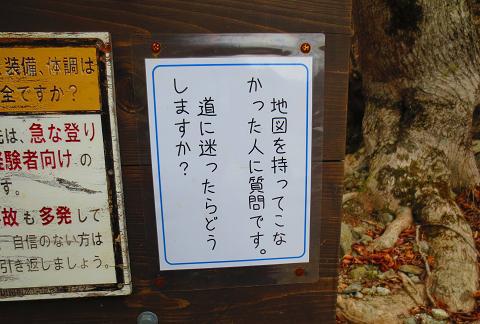 装備、体調は
全ですか？
は、急な登り
験者向けの
す。
故も多発して
自信のない方は
引き返しましょう。
地図を持ってこな
かった人に質問です。
道に迷ったらどう
しますか？